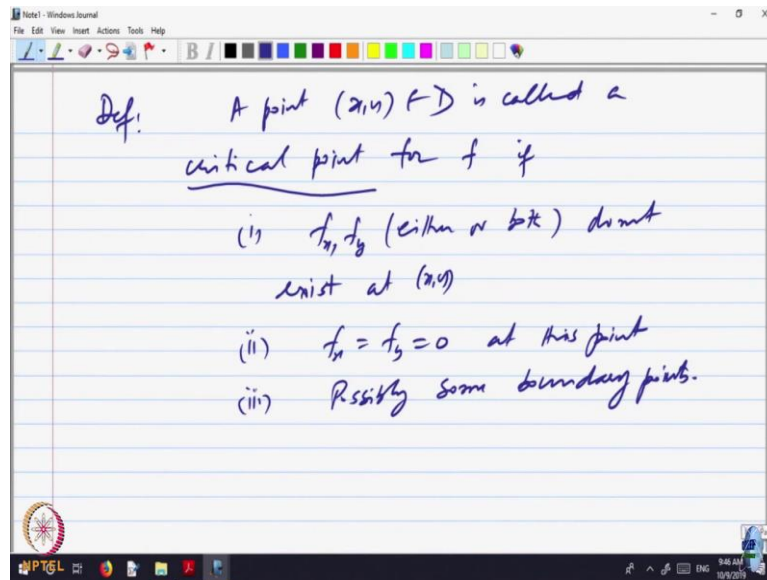 Note1 - Windows Journal
File Edit View Insert Actions Tools Help
B I
Def: A point (x,y) ∈ D is called a
critical point for f if
(i) fx, fy (either or both) do not
exist at (x,y)
(ii) fx = fy = 0 at this point
(iii) Possibly some boundary points.
NPTEL
ENG
9:46 AM
10/9/2019